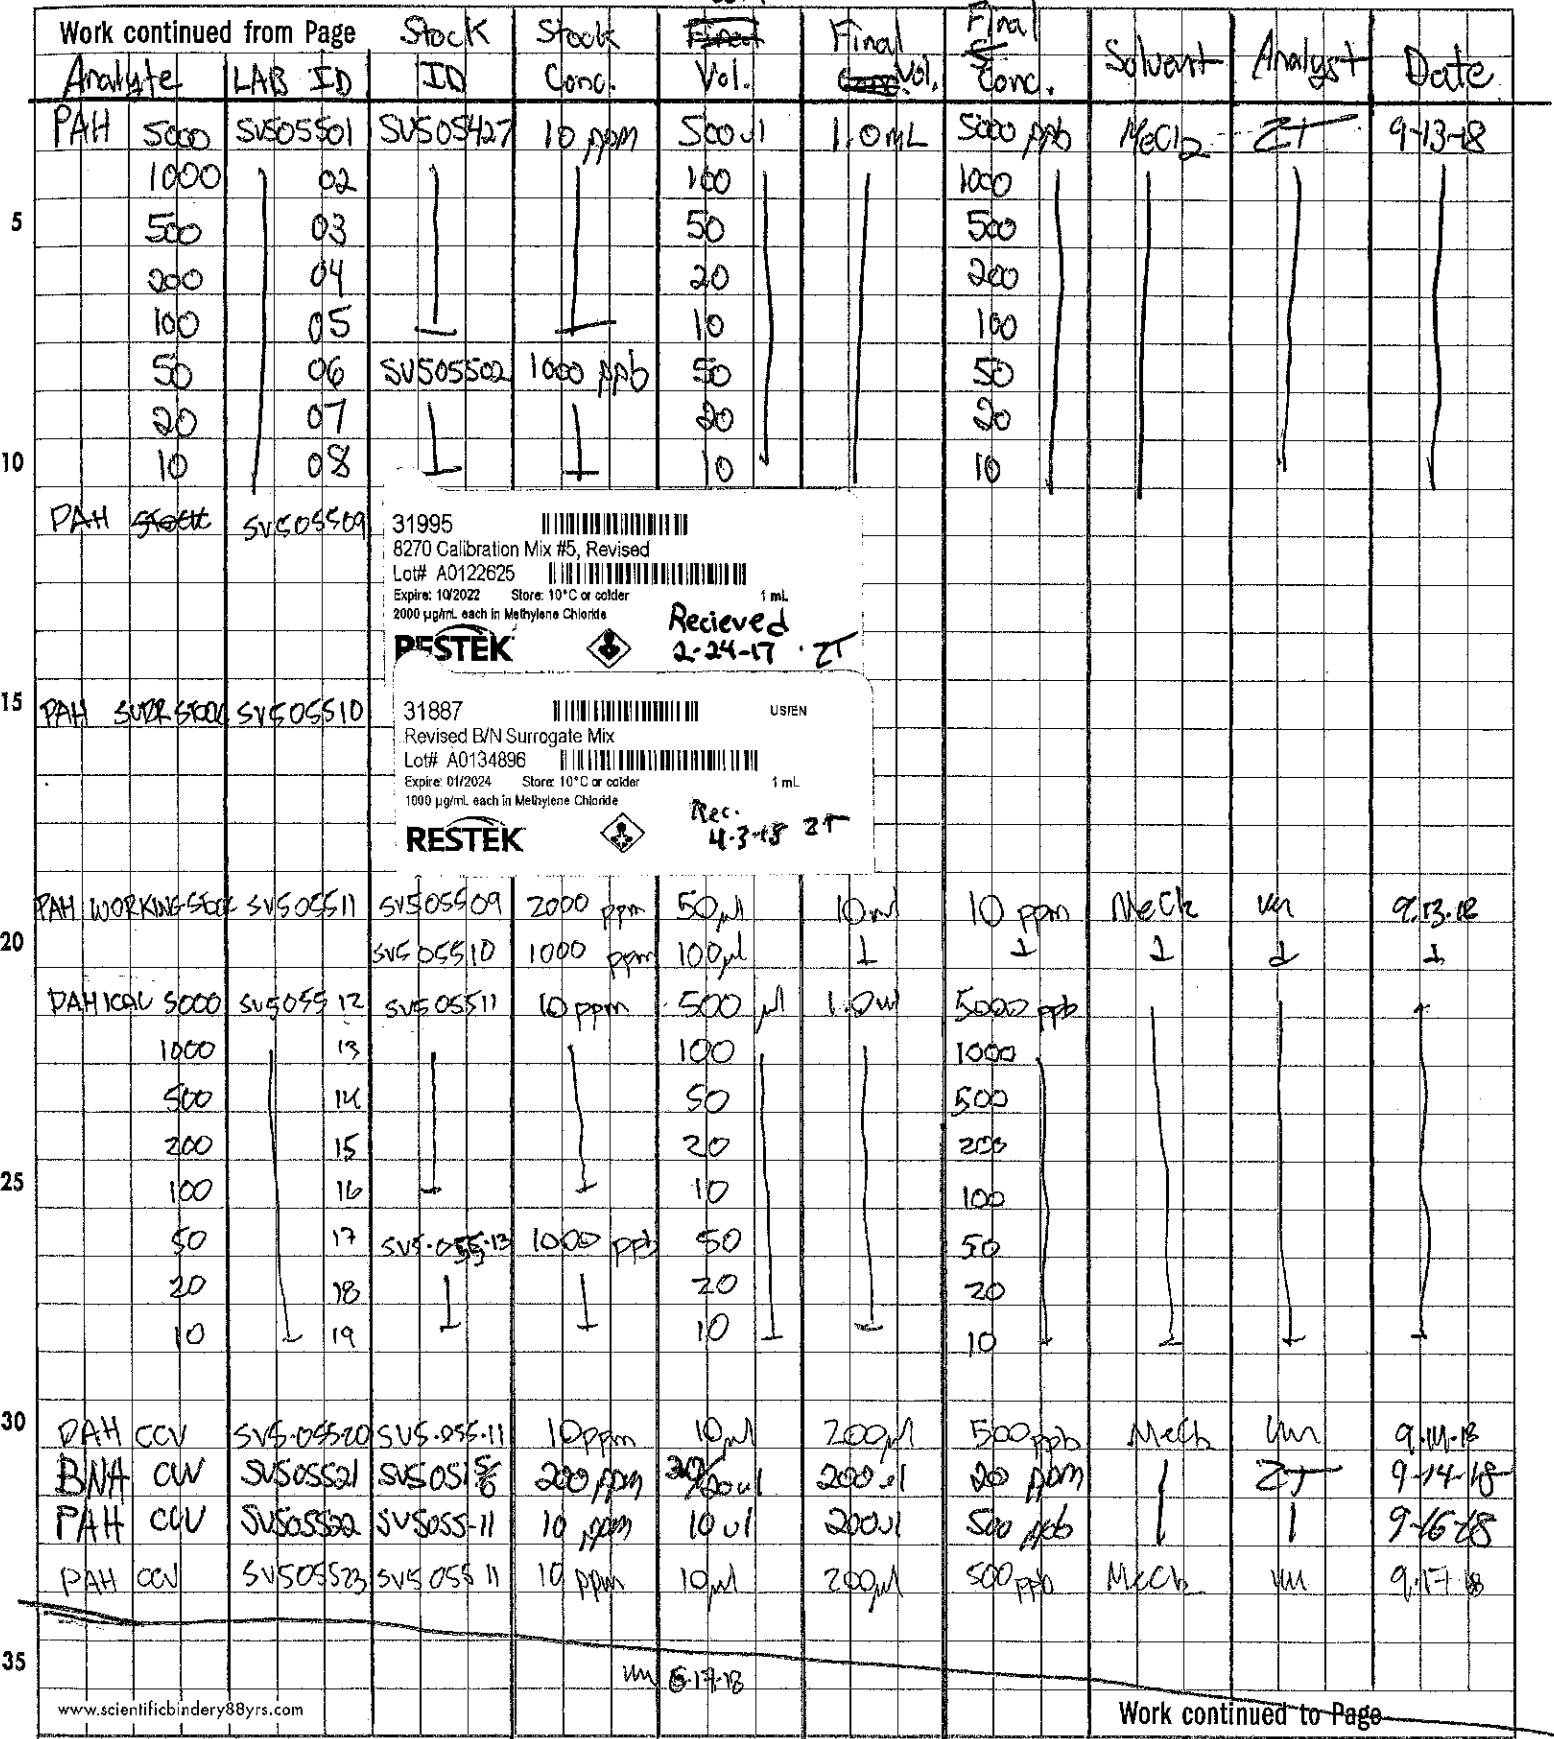 Work continued from Page Stock Stock Final Final Final
Analyte LAB ID ID Conc. Vol. Vol. Conc. Solvent Analyst Date
PAH 5000 SV505501 SV505427 10 ppm 500ul 1.0mL 5000 ppb MeCl2 ZT 9-13-18
1000 02 100 1000
5 500 03 50 500
200 04 20 200
100 05 10 100
50 06 SV505502 1000 ppb 50 50
20 07 20 20
10 10 08 10 10
PAH Stock SV505509
31995
8270 Calibration Mix #5, Revised
Lot# A0122625
Expire: 10/2022 Store: 10°C or colder 1 mL
2000 µg/mL each in Methylene Chloride
Recieved
RESTEK 2-24-17 ZT
15 PAH SURR Stock SV505510
31887 US/EN
Revised B/N Surrogate Mix
Lot# A0134896
Expire: 01/2024 Store: 10°C or colder 1 mL
1000 µg/mL each in Methylene Chloride
Rec.
RESTEK 4-3-18 ZT
PAH WORKING Stock SV505511 SV505509 2000 ppm 50µl 10ml 10 ppm MeCl2 9.13.18
20 SV505510 1000 ppm 100µl
PAH ICAL 5000 SV505512 SV505511 10 ppm 500 µl 1.0ml 5000 ppb
1000 13 100 1000
500 14 50 500
200 15 20 200
25 100 16 10 100
50 17 SV5-055-13 1000 ppb 50 50
20 18 20 20
10 19 10 10
30 PAH CCV SV5-05520 SV5-055-11 10ppm 10µl 200µl 500ppb MeCl2 9.14.18
BNA CCV SV505521 200 ppm 20ul 200ul 20 ppm ZT 9-14-18
PAH CCV SV505522 SV5055-11 10 ppm 10ul 200ul 500 ppb 9-16-18
PAH CCV SV505523 SV5055 11 10 ppm 10µl 200µl 500ppb MeCl2 9.17.18
35
www.scientificbindery88yrs.com Work continued to Page